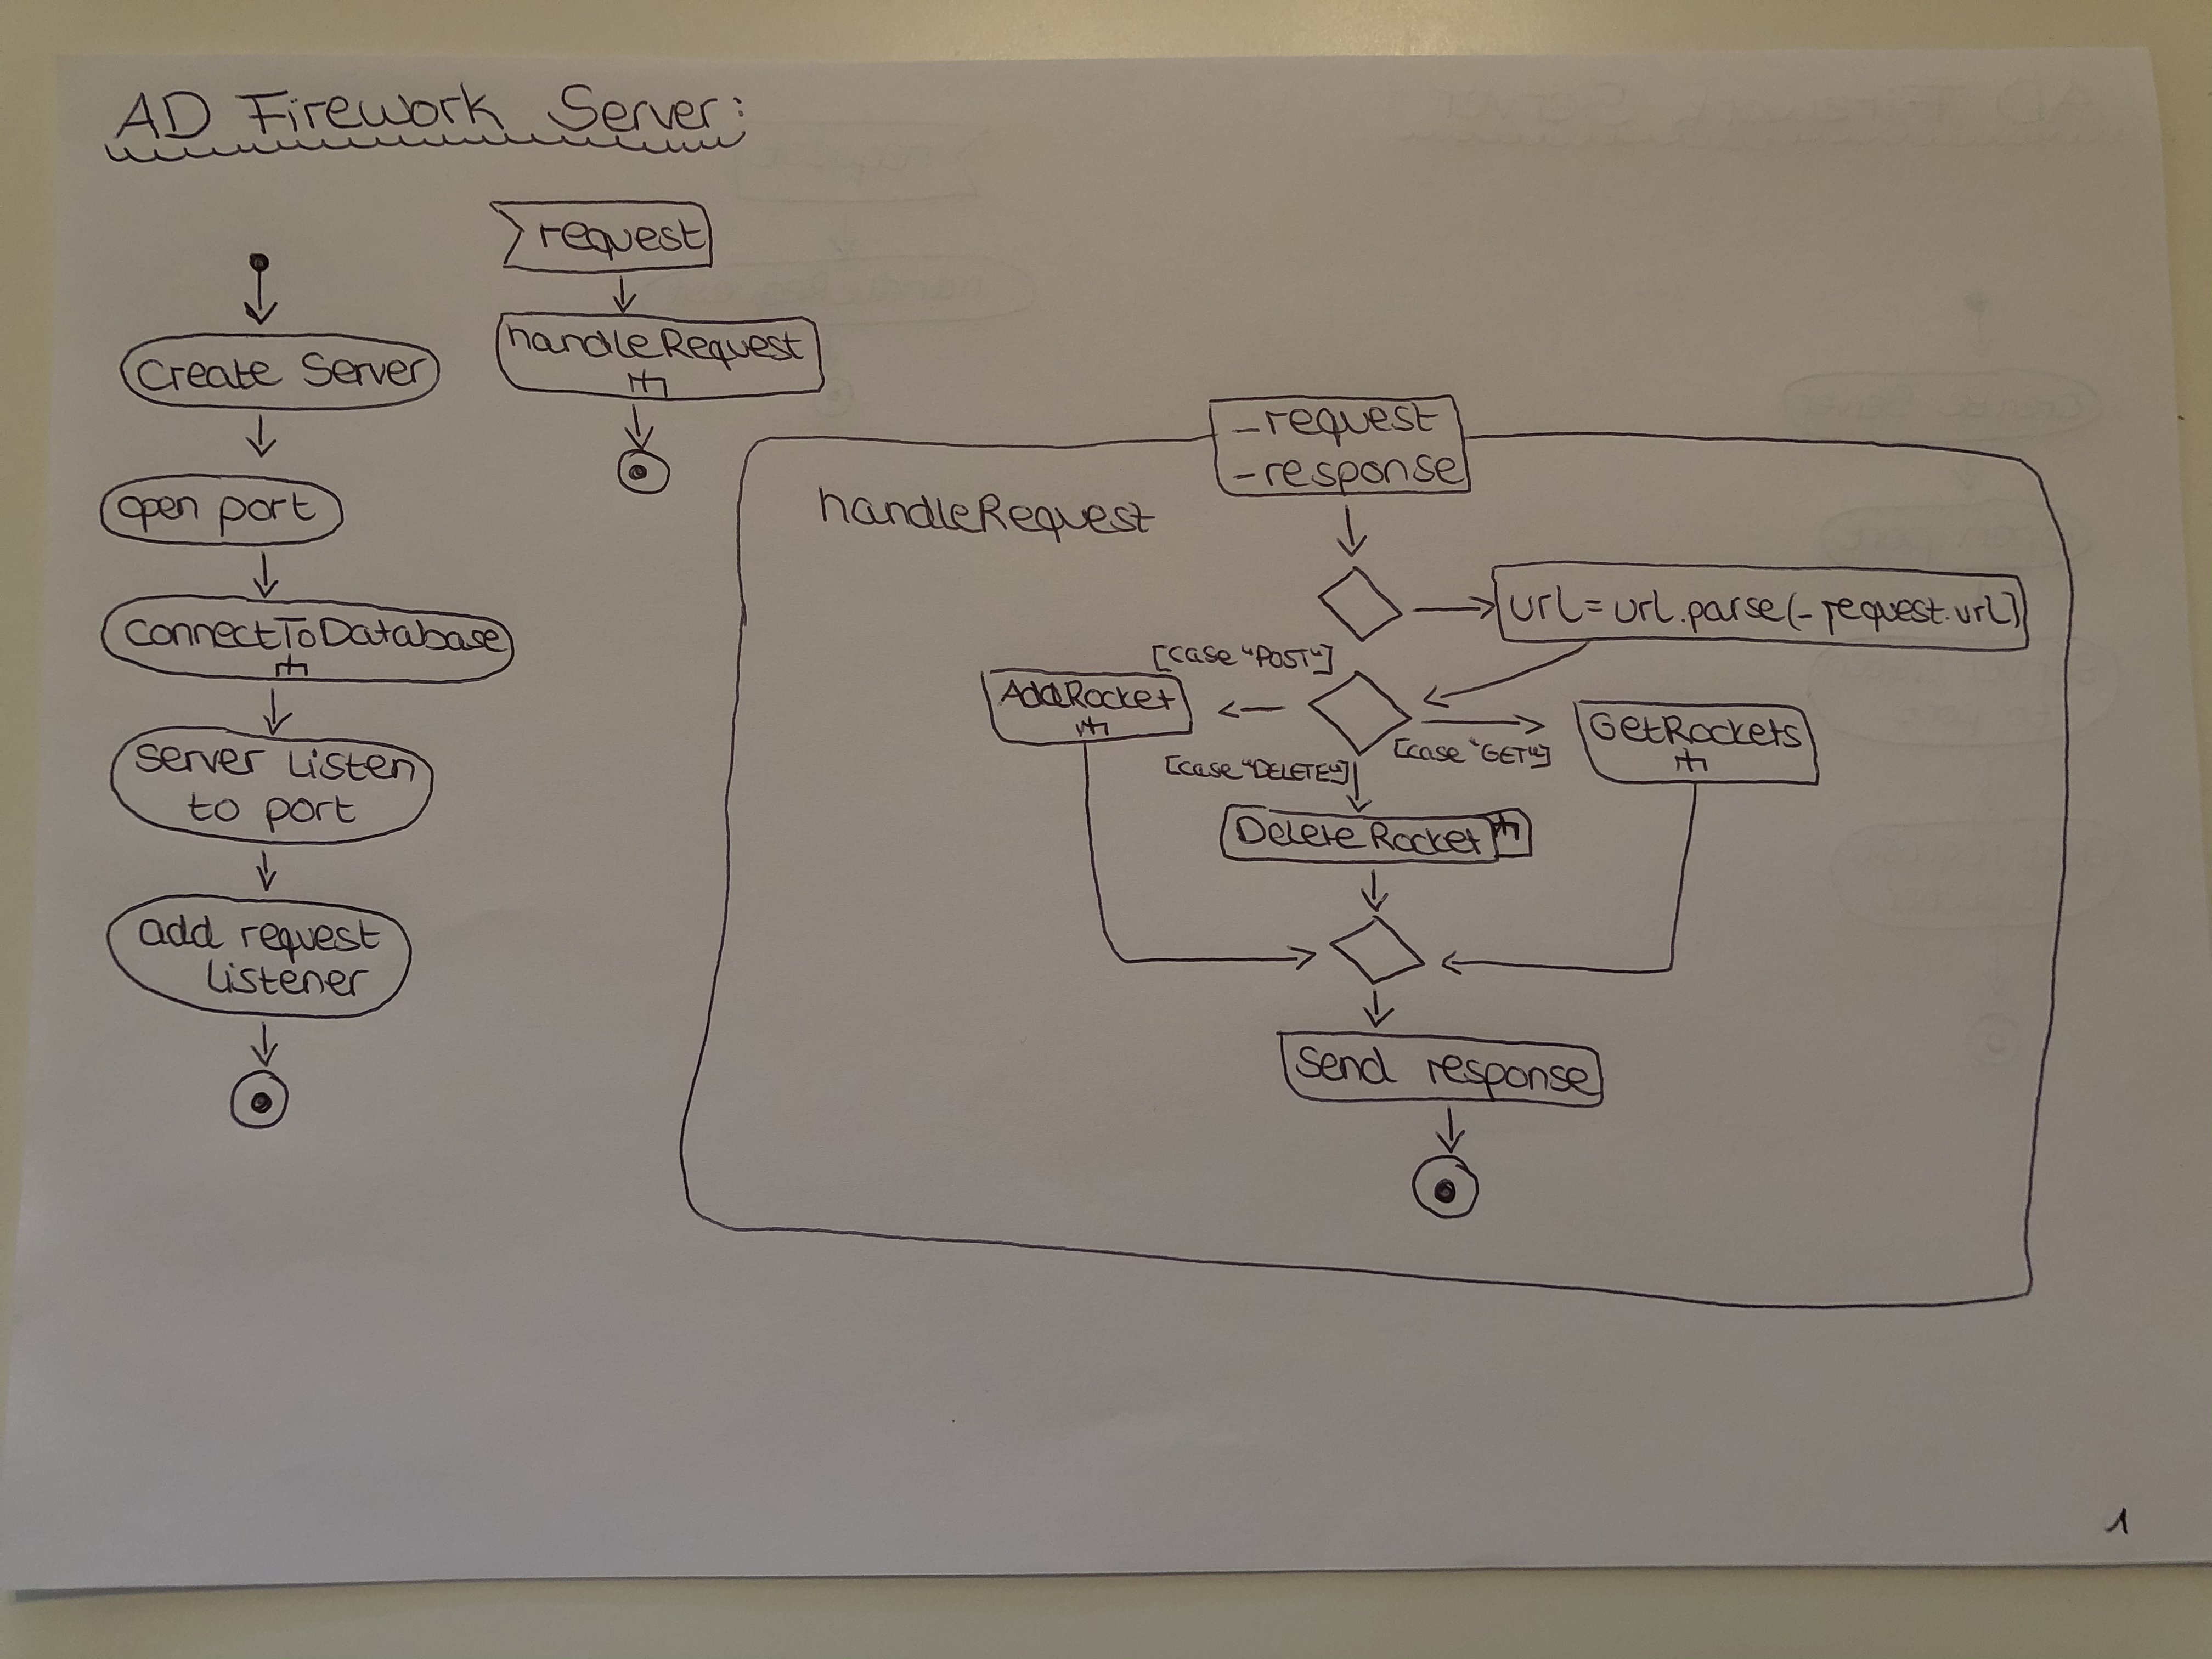 AD Firework Server:
Create Server
open port
ConnectToDatabase
Server listen
to port
add request
listener
request
handleRequest
handleRequest
-request
-response
url=url.parse(-request.url)
[case "POST"]
AddRocket
[case "DELETE"]
[case "GET"]
DeleteRocket
GetRockets
Send response
1